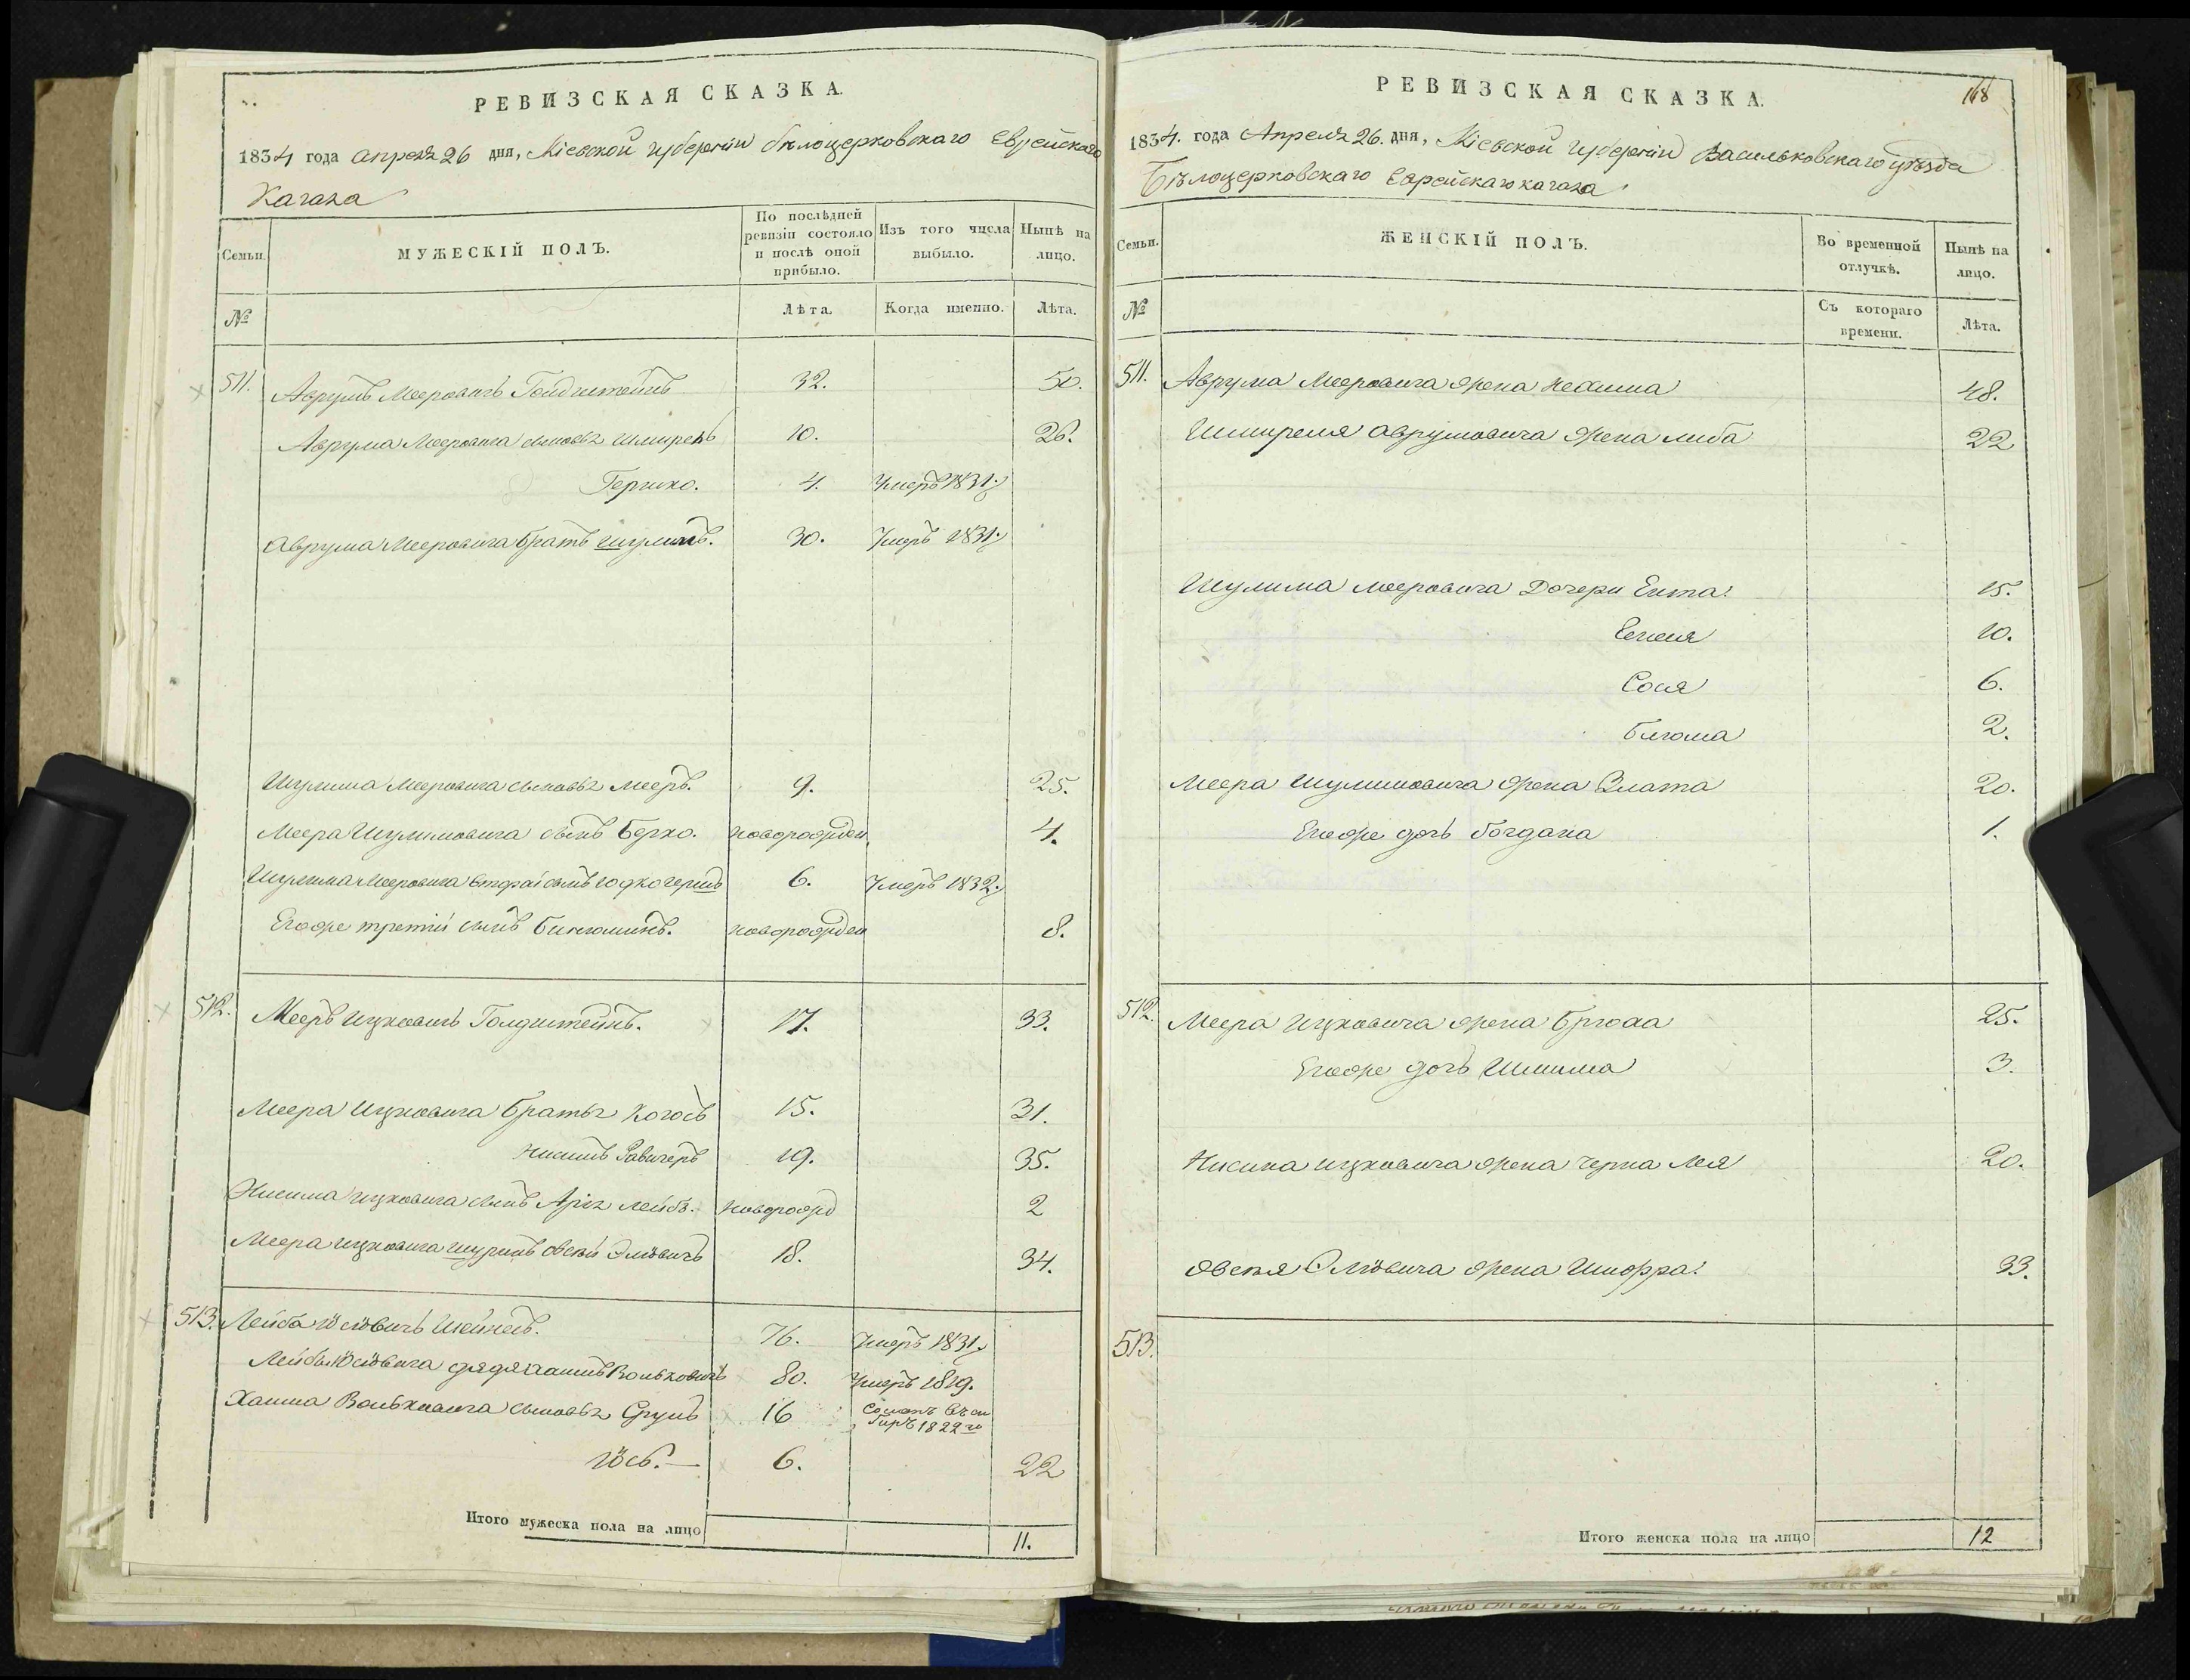 РЕВИЗСКАЯ СКАЗКА.
1834 года апреля 26 дня, Кіевской губерніи бѣлоцерковскаго Еврейскаго
Кагала
Семьи.
МУЖЕСКІЙ ПОЛЪ.
По послѣдней ревизіи состояло и послѣ оной прибыло.
Изъ того числа выбыло.
Нынѣ на лицо.
№
Лѣта.
Когда именно.
Лѣта.
511. Аврумъ Мееровичъ Голдштейнъ 32. 50.
Аврума Мееровича сыновья Шмирель 10. 26.
Гершко. 4. Умеръ 1831.
Аврума Мееровича братъ Шулимъ. 30. Умеръ 1831.
Шулима Мееровича сыновья Мееръ. 9. 25.
Меера Шулимовича сынъ Берко. новорожден 4.
Шулима Мееровича вторый сынъ 6. Умеръ 1832.
Егоже третій сынъ Бинюминъ. новорожден 8.
512. Мееръ Ицковичъ Голдштейнъ. 17. 33.
Меера Ицковича братья 15. 31.
Нисинъ 19. 35.
Нисина Ицковича сынъ Арія Лейбъ. новорожд 2
Меера Ицковича шуринъ Овсѣй 18. 34.
513. Лейба Іосіовичъ 76. Умеръ 1831.
Лейбы Іосіовича дядя Хаимъ Вольковичъ 80. Умеръ 1819.
Хаима Вольковича сыновья Срулъ 16 Сосланъ въ си
биръ 1822го
Іось. — 6. 22
Итого мужеска пола на лицо 11.
168
РЕВИЗСКАЯ СКАЗКА.
1834. года Апреля 26. дня, Кіевской губерніи Васильковскаго уѣзда
Бѣлоцерковскаго Еврейскаго кагала
Семьи.
ЖЕНСКІЙ ПОЛЪ.
Во временной отлучкѣ.
Нынѣ на лицо.
№
Съ котораго времени.
Лѣта.
511. Аврума Мееровича жена Нехама 48.
Шмиреля Аврумовича жена Либа 22
Шулима Мееровича Дочери Ента. 15.
10.
Сося 6.
Блюма 2.
Меера Шулимовича жена Злата 20.
Егоже дочь Богдана 1.
512. Меера Ицковича жена Брюха 25.
Егоже дочь Шишма 3.
Нисина Ицковича жена Черна Лея 20.
Овсѣя жена Шифра. 33.
513.
Итого женска пола на лицо 12